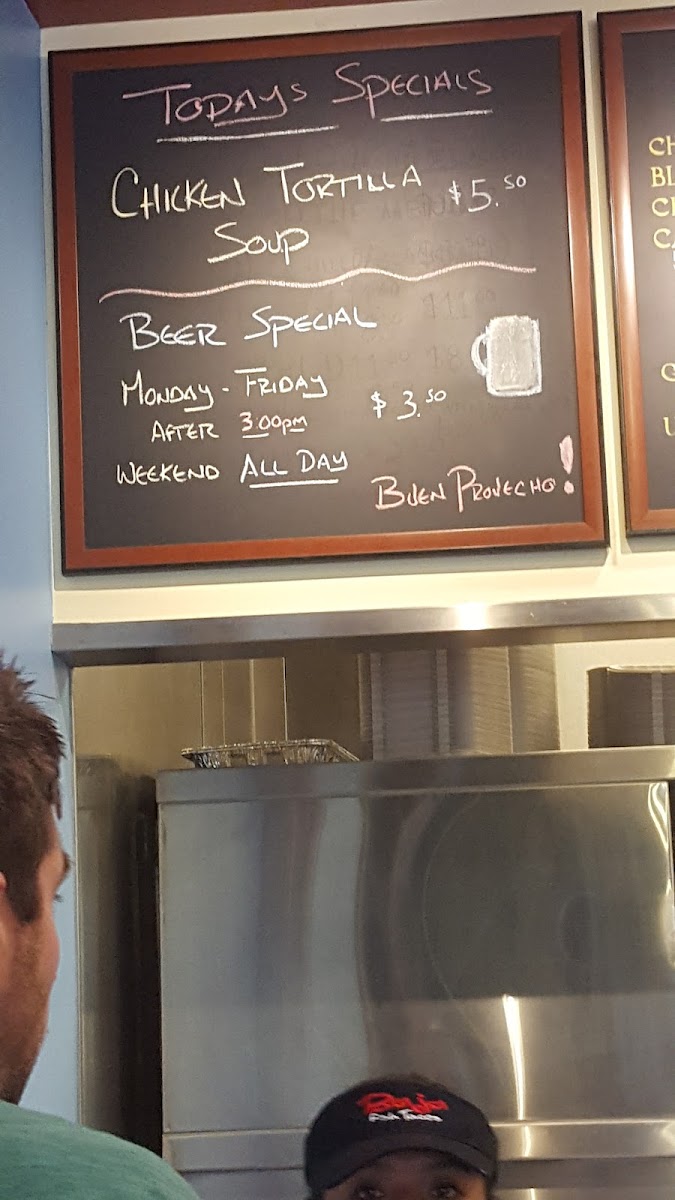 TODAYS SPECIALS
CHICKEN TORTILLA $5.50
SOUP
BEER SPECIAL
MONDAY - FRIDAY
AFTER 3:00pm $3.50
WEEKEND ALL DAY
BUEN PROVECHO!
CH
BL
CH
CA
Baja
Fish Tacos